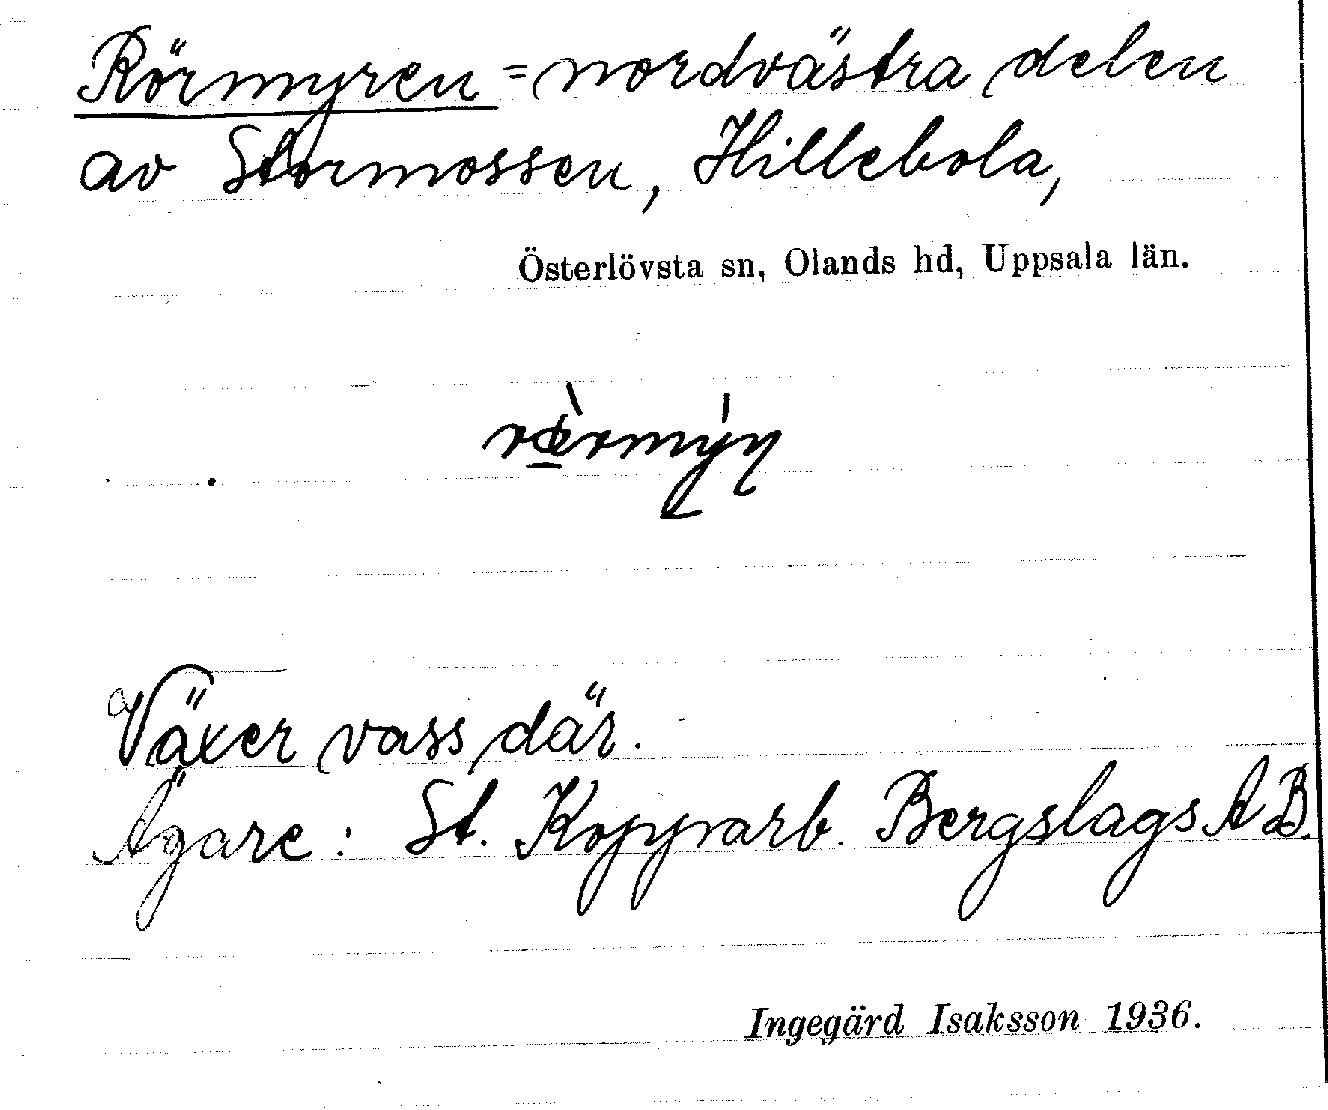 Rörmyren = nordvästra delen
av Stormossen, Hillebola,
Österlövsta sn, Olands hd, Uppsala län.
Växer vass där.
Ägare: St. Kopparb. Bergslags AB.
Ingegärd Isaksson 1936.